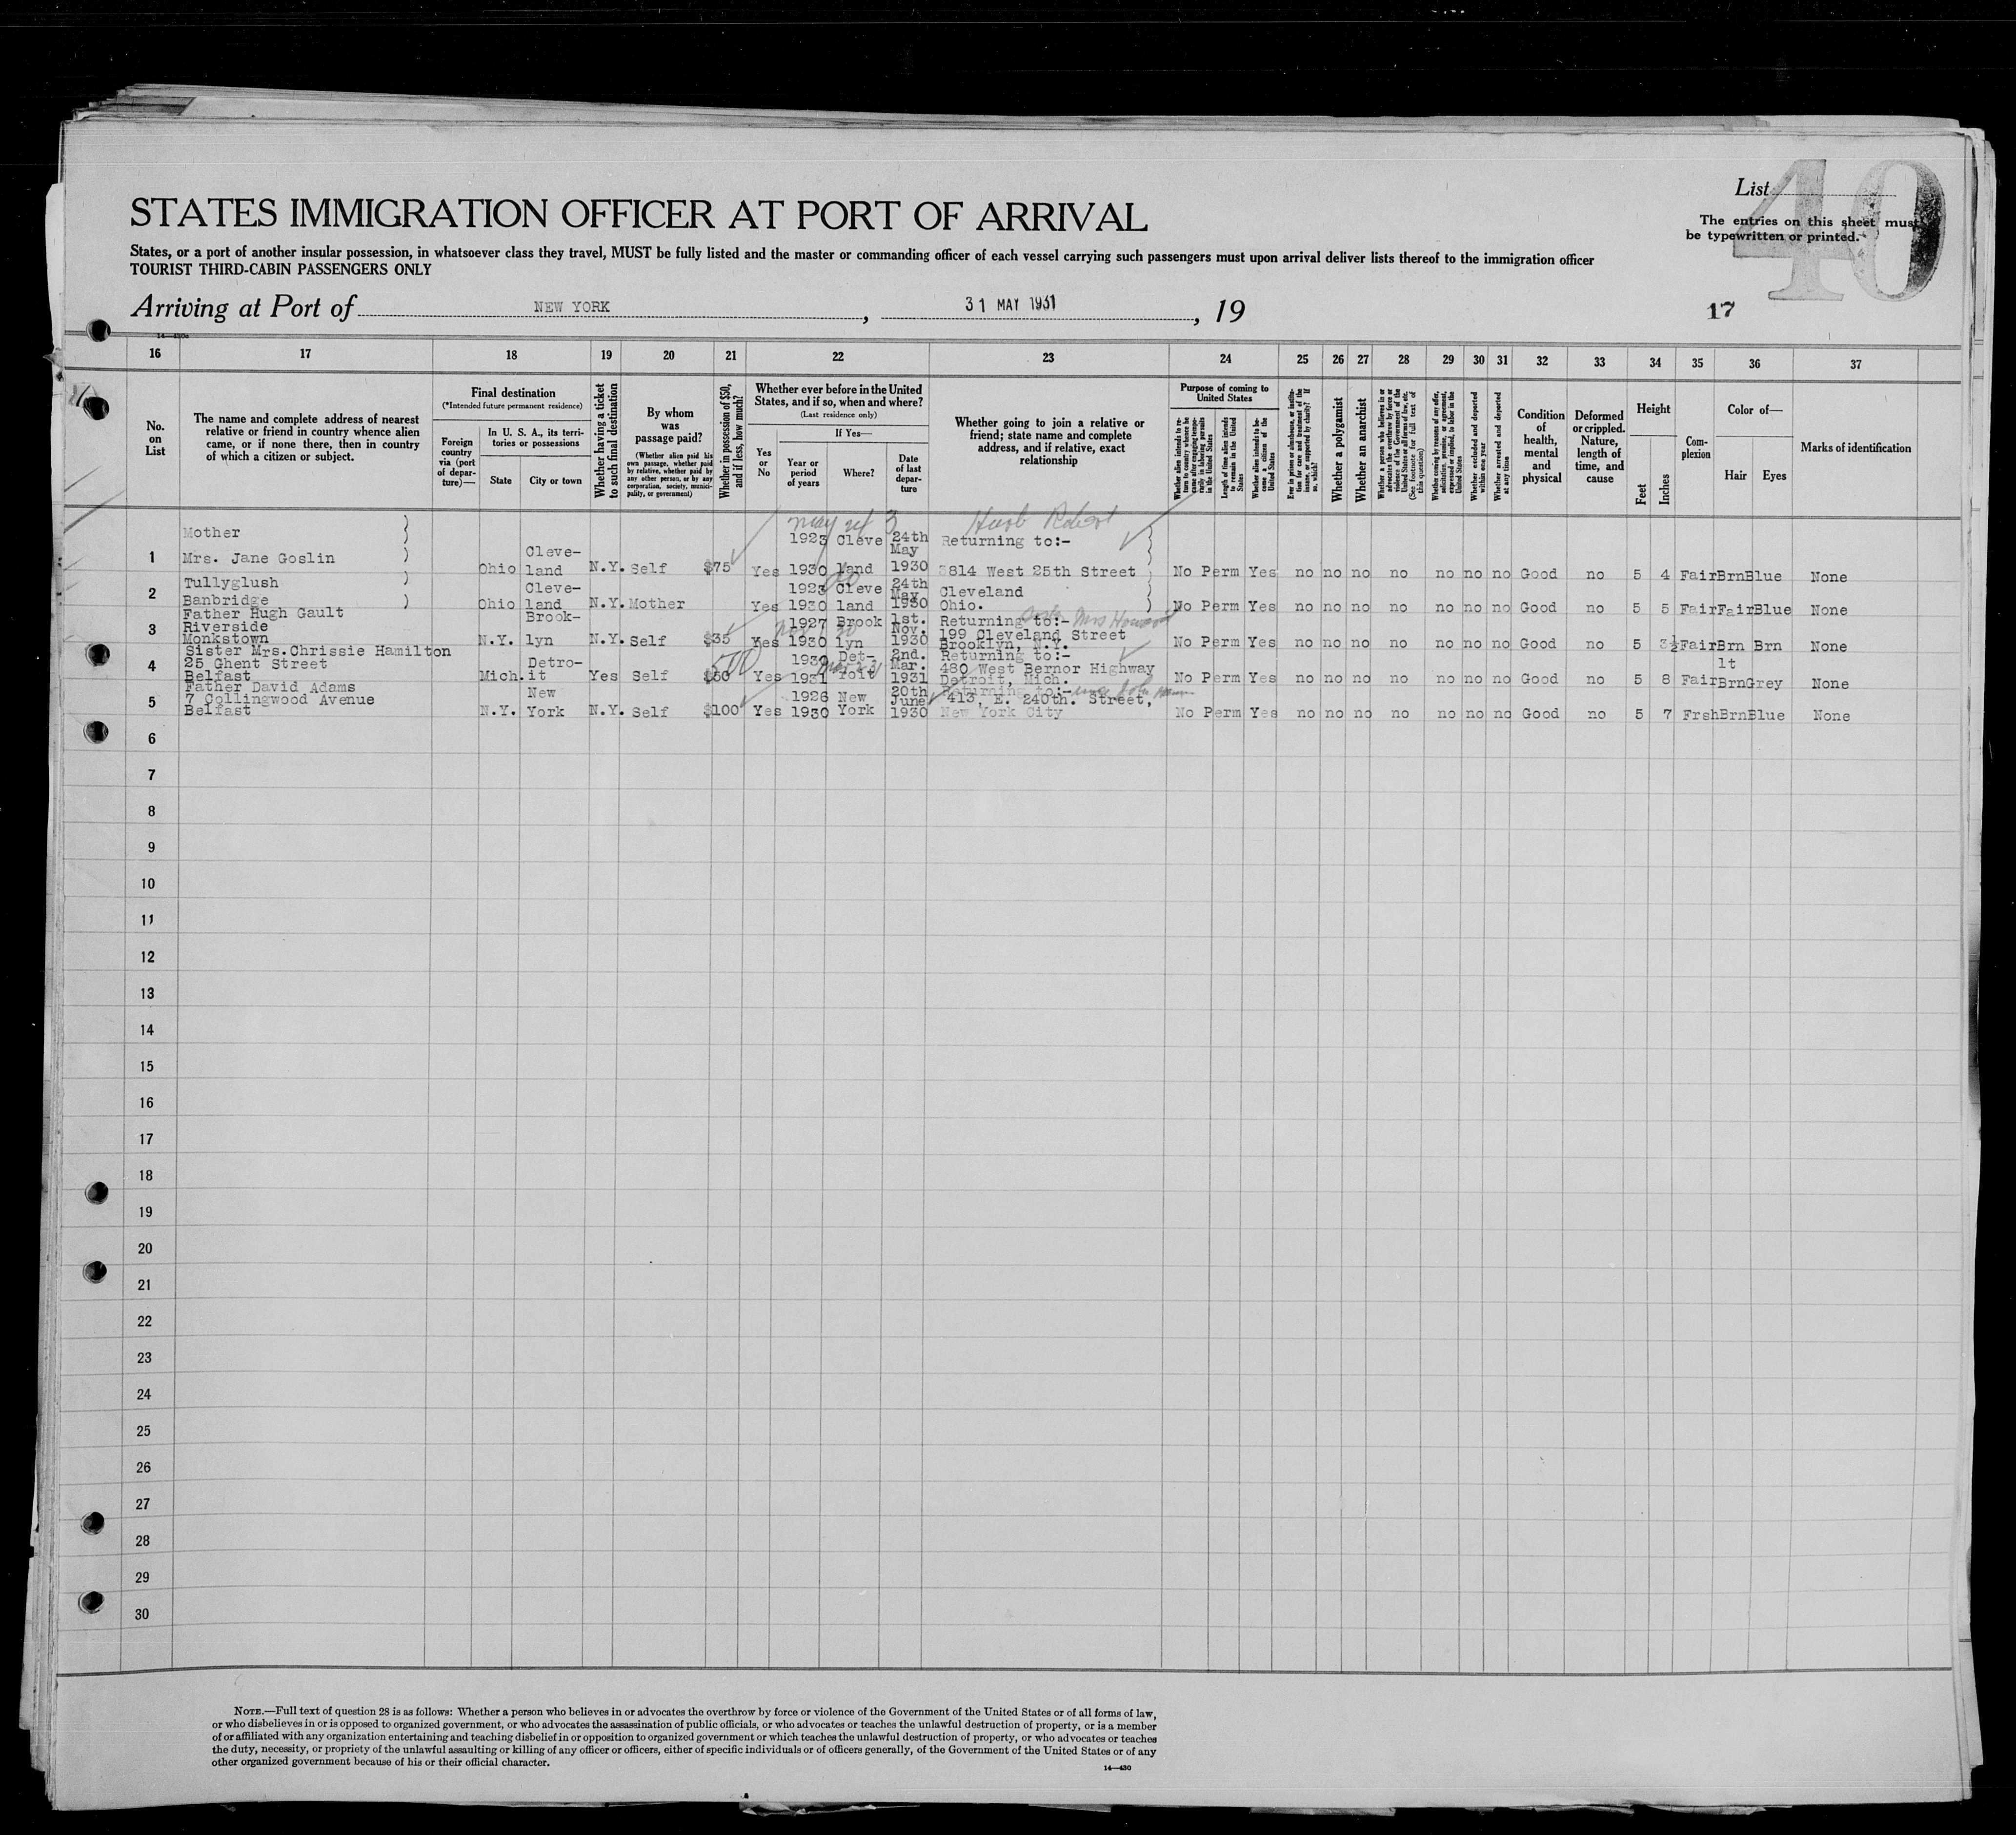 List
40
The entries on this sheet must
be typewritten or printed.
STATES IMMIGRATION OFFICER AT PORT OF ARRIVAL
States, or a port of another insular possession, in whatsoever class they travel, MUST be fully listed and the master or commanding officer of each vessel carrying such passengers must upon arrival deliver lists thereof to the immigration officer
TOURIST THIRD-CABIN PASSENGERS ONLY
Arriving at Port of NEW YORK, 31 MAY 1931, 19
17
16 17 18 19 20 21 22 23 24 25 26 27 28 29 30 31 32 33 34 35 36 37
No.
on
List
The name and complete address of nearest
relative or friend in country whence alien
came, or if none there, then in country
of which a citizen or subject.
Final destination
(*Intended future permanent residence)
Foreign
country
via (port
of depar-
ture)—
In U. S. A., its terri-
tories or possessions
State
City or town
Whether having a ticket
to such final destination
By whom
was
passage paid?
(Whether alien paid his
own passage, whether paid
by relative, whether paid by
any other person, or by any
corporation, society, munici-
pality, or government)
Whether in possession of $50,
and if less, how much?
Whether ever before in the United
States, and if so, when and where?
(Last residence only)
Yes
or
No
If Yes—
Year or
period
of years
Where?
Date
of last
depar-
ture
Whether going to join a relative or
friend; state name and complete
address, and if relative, exact
relationship
Purpose of coming to
United States
Whether alien intends to re-
turn to country whence he
came after engaging tempo-
rarily in laboring pursuits
in the United States
Length of time alien intends
to remain in the United
States
Whether alien intends to be-
come a citizen of the
United States
Ever in prison or almshouse, or institu-
tion for care and treatment of the
insane, or supported by charity? If
so, which?
Whether a polygamist
Whether an anarchist
Whether a person who believes in or
advocates the overthrow by force or
violence of the Government of the
United States or all forms of law, etc.
(See footnote for full text of
this question)
Whether coming by reasons of any offer,
solicitation, promise, or agreement,
expressed or implied, to labor in the
United States
Whether excluded and deported
within one year
Whether arrested and deported
at any time
Condition
of
health,
mental
and
physical
Deformed
or crippled.
Nature,
length of
time, and
cause
Height
Feet
Inches
Com-
plexion
Color of—
Hair
Eyes
Marks of identification
Mother
1 Mrs. Jane Goslin Ohio Cleve-
land N.Y. Self $75 Yes 1923
1930 Cleve
land 24th
May
1930 Returning to:-
3814 West 25th Street No Perm Yes no no no no no no no Good no 5 4 Fair Brn Blue None
2 Tullyglush
Banbridge Ohio Cleve-
land N.Y. Mother Yes 1923
1930 Cleve
land 24th
May
1930 Cleveland
Ohio. No Perm Yes no no no no no no no Good no 5 5 Fair Fair Blue None
3 Father Hugh Gault
Riverside
Monkstown N.Y. Brook-
lyn N.Y. Self $35 Yes 1927
1930 Brook
lyn 1st.
Nov.
1930 Returning to:-
199 Cleveland Street
Brooklyn, N.Y. No Perm Yes no no no no no no no Good no 5 3½ Fair Brn Brn None
4 Sister Mrs.Chrissie Hamilton
25 Ghent Street
Belfast Mich. Detro-
it Yes Self $50 500 Yes 1930
1931 Det-
roit 2nd.
Mar.
1931 Returning to:-
480 West Bernor Highway
Detroit, Mich. No Perm Yes no no no no no no no Good no 5 8 Fair lt
Brn Grey None
5 Father David Adams
7 Collingwood Avenue
Belfast N.Y. New
York N.Y. Self $100 Yes 1926
1930 New
York 20th
June
1930 Returning to:-
413, E. 240th. Street,
New York City No Perm Yes no no no no no no no Good no 5 7 Frsh Brn Blue None
6
7
8
9
10
11
12
13
14
15
16
17
18
19
20
21
22
23
24
25
26
27
28
29
30
NOTE.—Full text of question 28 is as follows: Whether a person who believes in or advocates the overthrow by force or violence of the Government of the United States or of all forms of law,
or who disbelieves in or is opposed to organized government, or who advocates the assassination of public officials, or who advocates or teaches the unlawful destruction of property, or is a member
of or affiliated with any organization entertaining and teaching disbelief in or opposition to organized government or which teaches the unlawful destruction of property, or who advocates or teaches
the duty, necessity, or propriety of the unlawful assaulting or killing of any officer or officers, either of specific individuals or of officers generally, of the Government of the United States or of any
other organized government because of his or their official character.
14—430